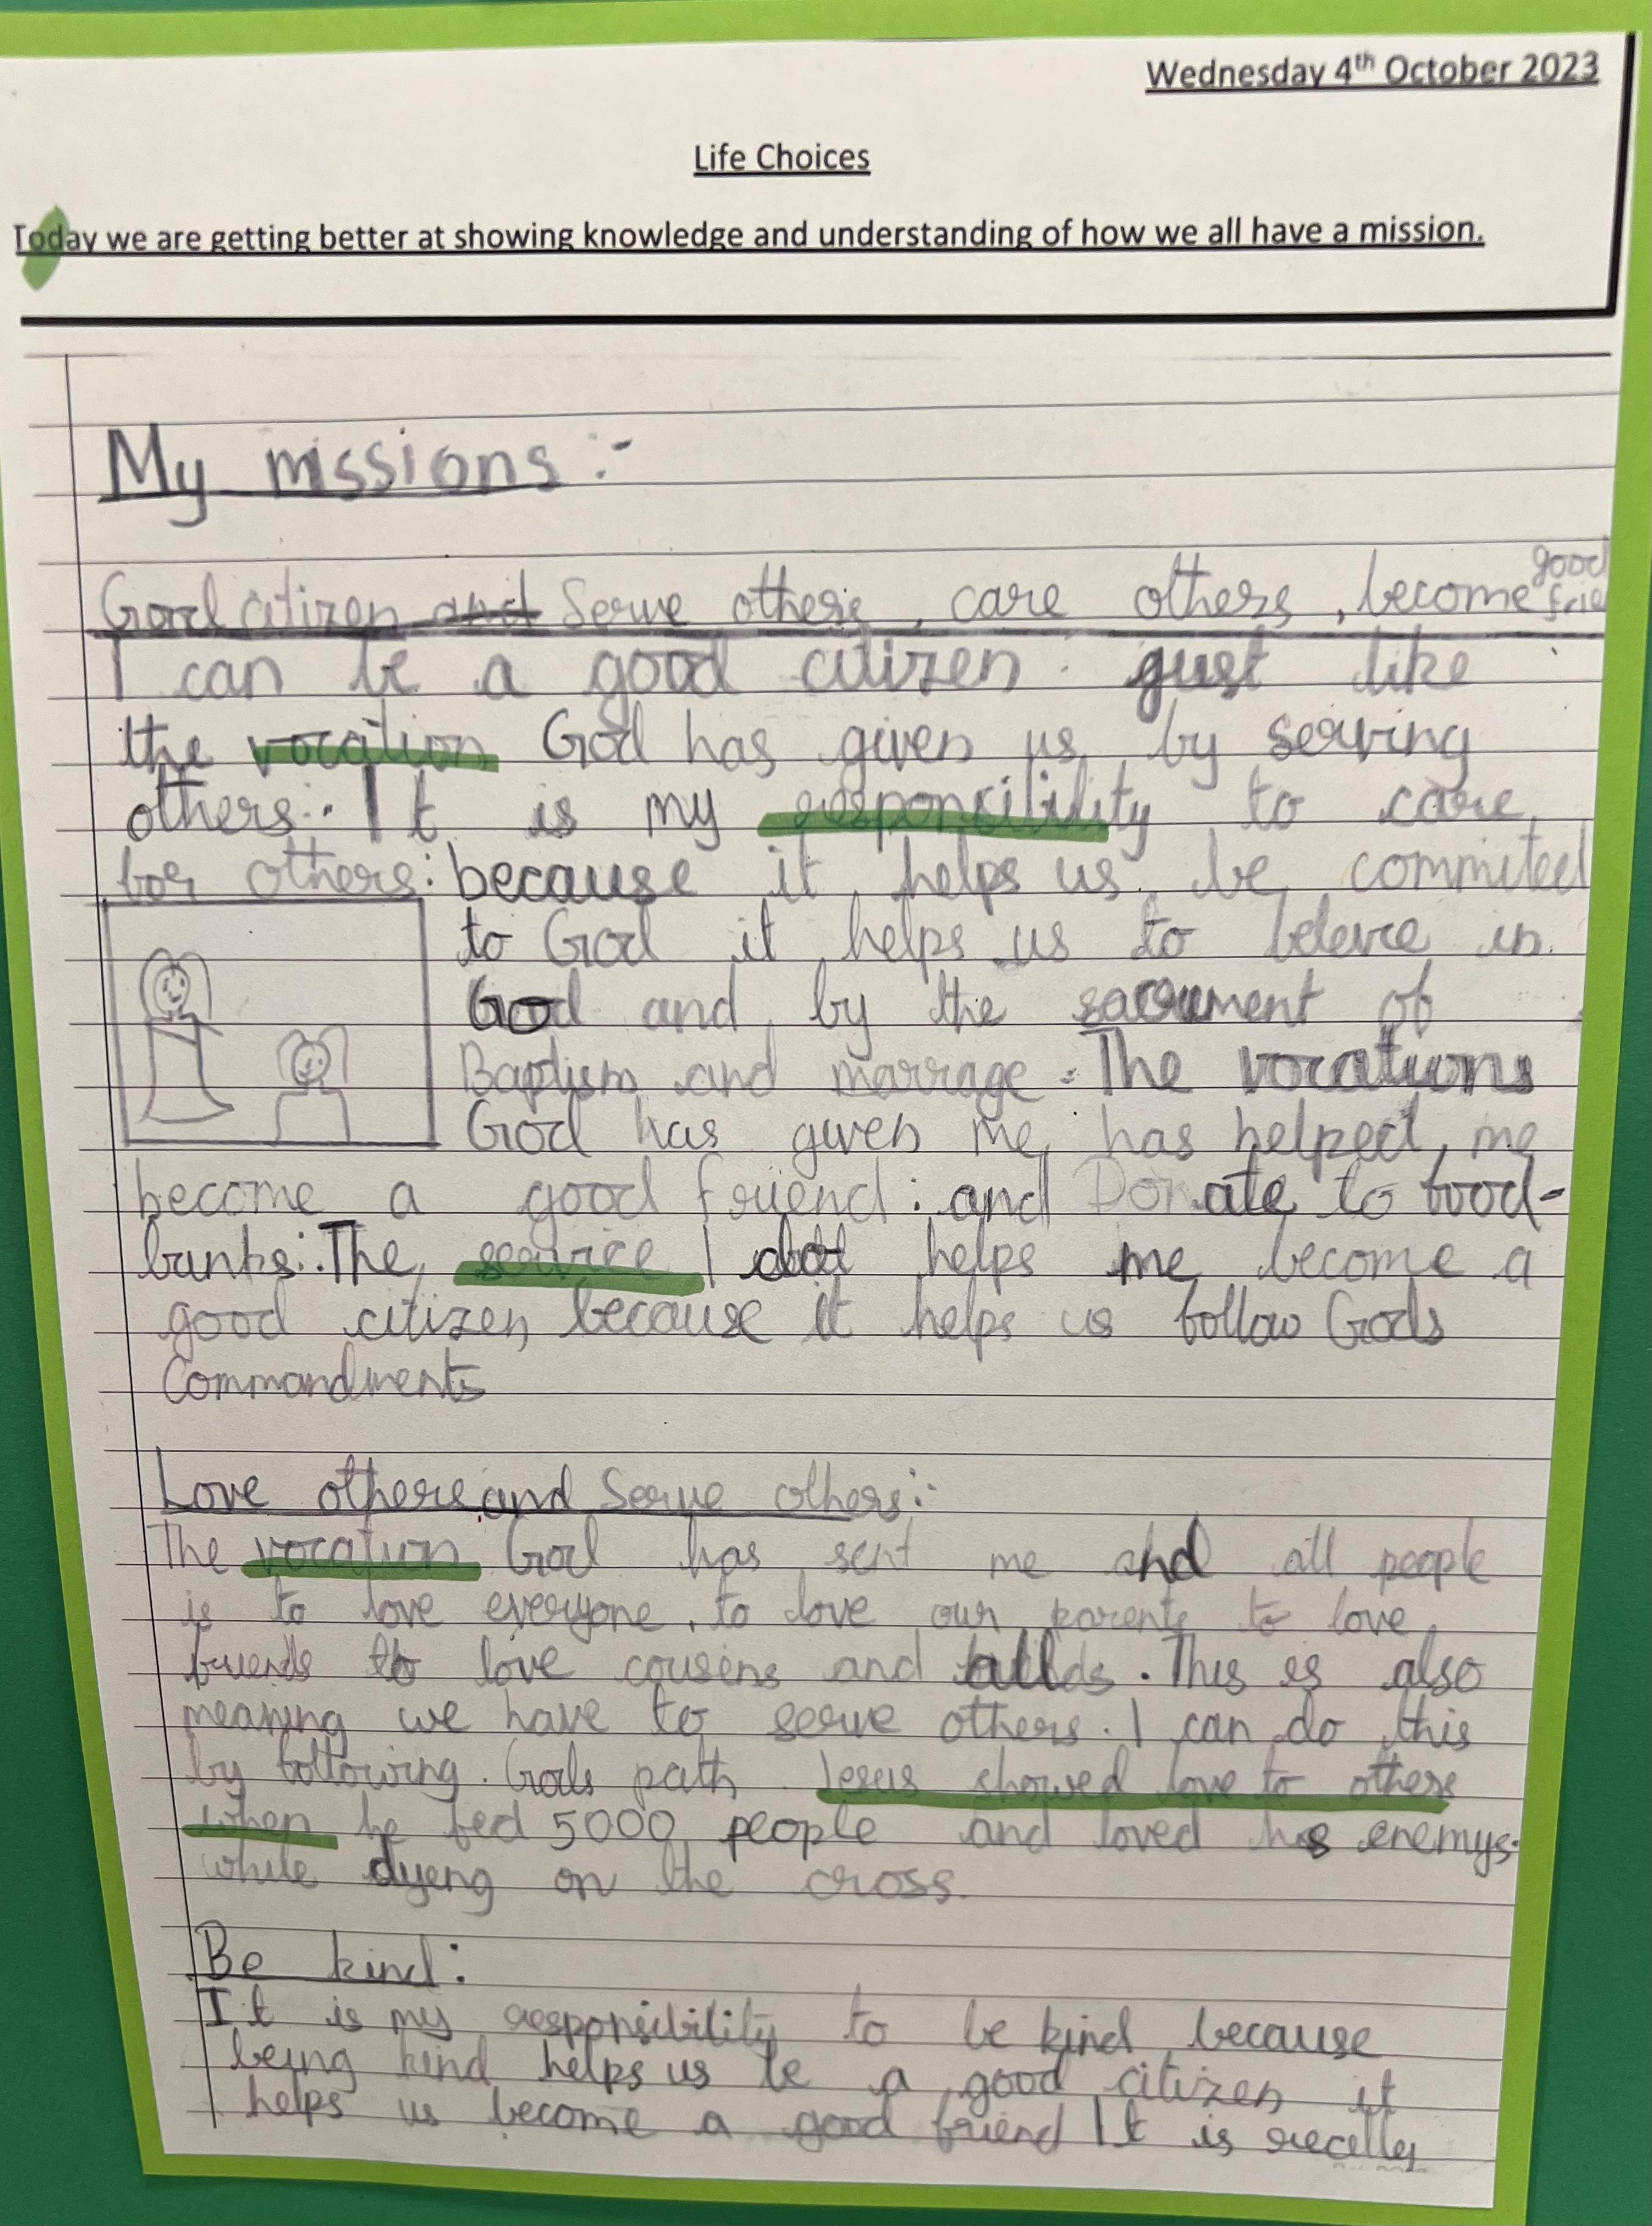 Wednesday 4th October 2023
Life Choices
Today we are getting better at showing knowledge and understanding of how we all have a mission.
My missions :-
good
Good citizen and Serve others, care others, become frie
I can be a good citizen. just like
the vocation God has given us by serving
others:. It is my responsibility to care
for others: because it helps us be commited
to God it helps us to beleve in
God and by the sacrument of
Baptism and marrage. The vocations
God has given me has helped me
become a good friend: and Donate to food-
banks:. The service I helps me become a
good citizen because it helps us follow Gods
Commandments
Love others and Serve others:-
The vocation God has sent me and all people
is to love everyone, to love our parents to love
friends to love cousins and . This is also
meaning we have to serve others. I can do this
by following Gods path. Jesus showed love to others
when he fed 5000 people and loved his enemys.
while dyeng on the cross.
Be kind:
It is my responsibility to be kind because
being kind helps us be a good citizen it
helps us become a good friend It is